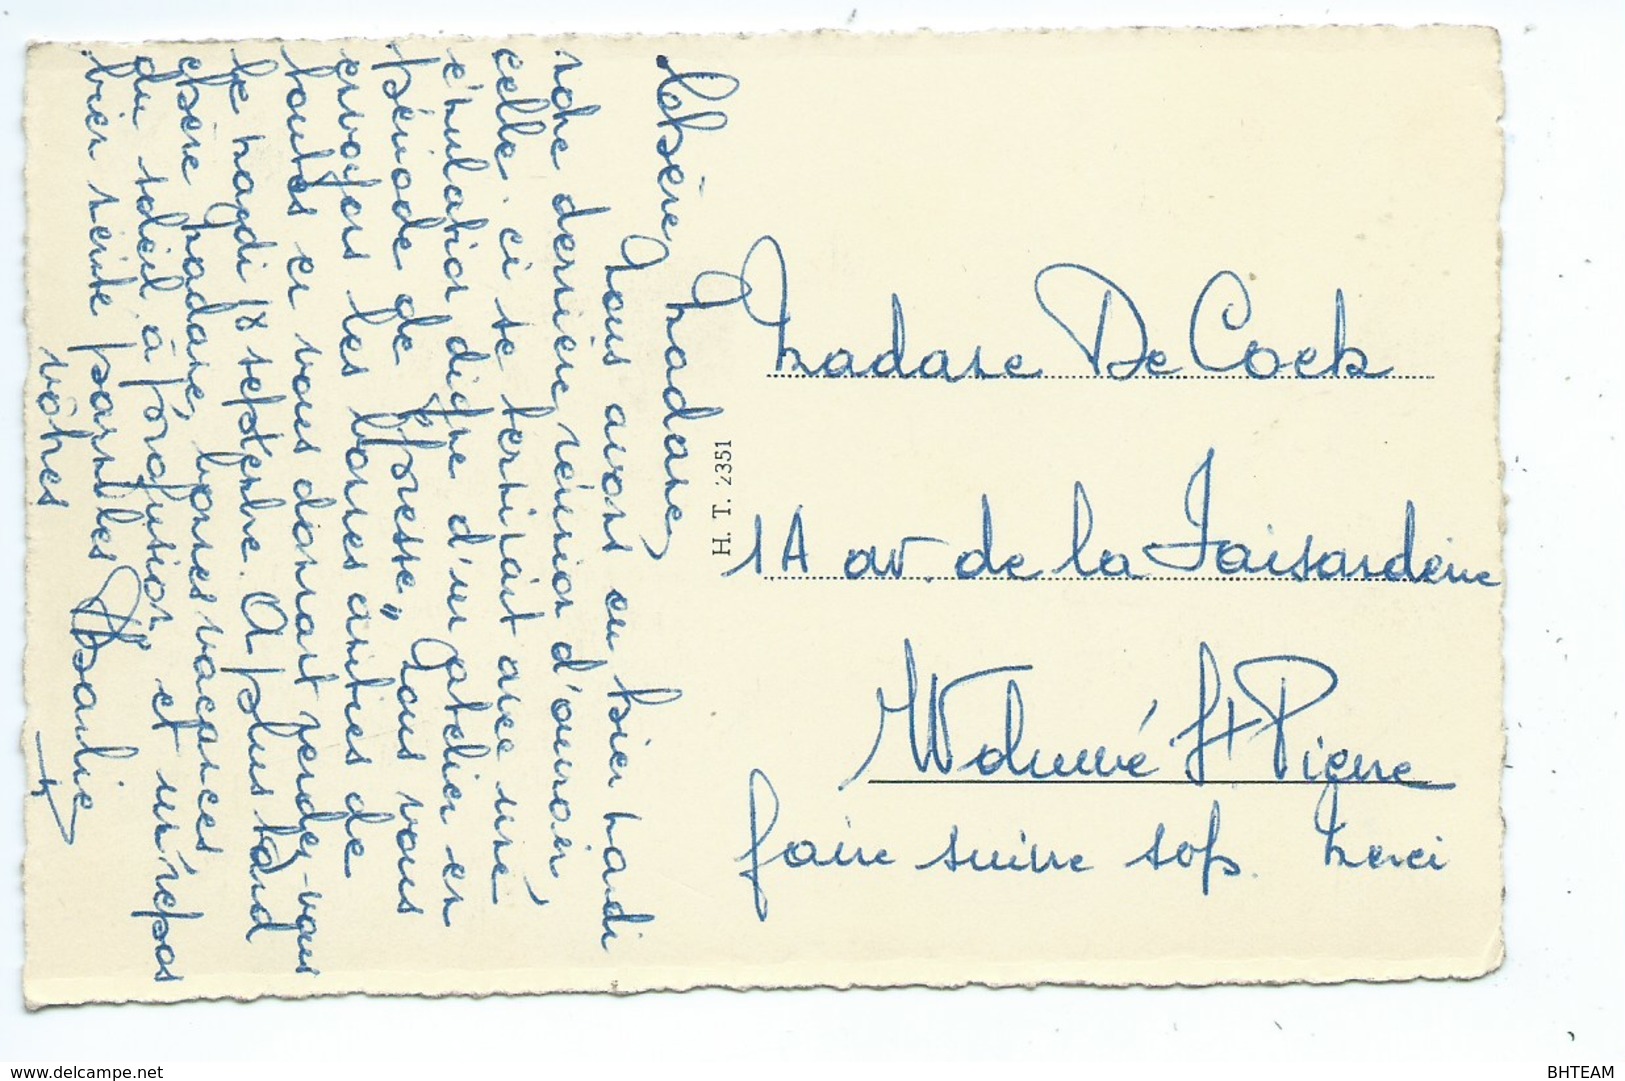 Chère Madame,
Nous avons eu hier mardi
notre dernière réunion d'ouvroir
celle-ci se terminait avec une
émulation digne d'un atelier en
période de "presse". Nous vous
envoyons les bonnes amitiés de
toutes en vous donnant rendez-vous
le mardi septembre. A plus tard
chère Madame, bonnes vacances
du soleil à profusion, et un repos
bien mérité parmi les
vôtres
H. T. 2351
Madame De Cock
1A av. de la Faisanderie
Woluwé St Pierre
faire suivre svp. Merci
www.delcampe.net
BHTEAM